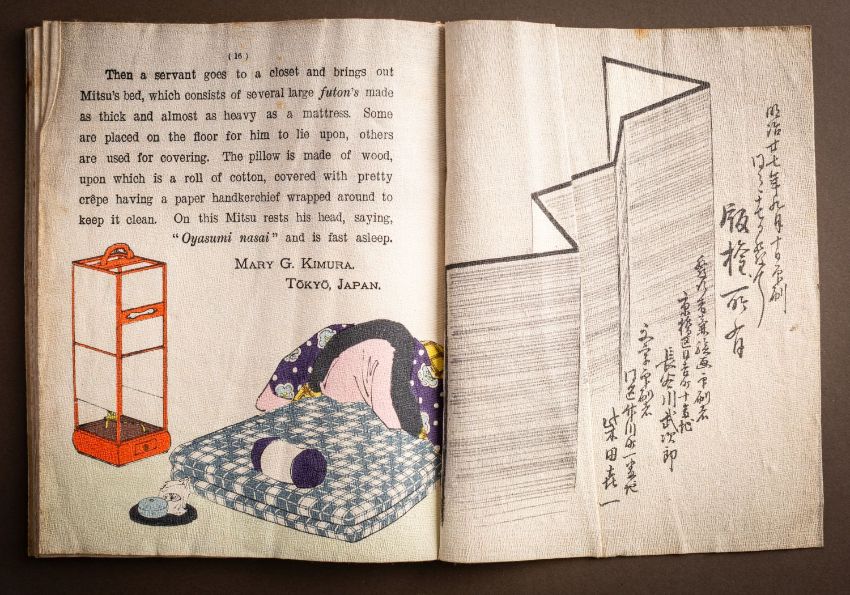 ( 16 )
Then a servant goes to a closet and brings out
Mitsu's bed, which consists of several large futon's made
as thick and almost as heavy as a mattress. Some
are placed on the floor for him to lie upon, others
are used for covering. The pillow is made of wood,
upon which is a roll of cotton, covered with pretty
crêpe having a paper handkerchief wrapped around to
keep it clean. On this Mitsu rests his head, saying,
"Oyasumi nasai" and is fast asleep.
MARY G. KIMURA.
TŌKYŌ, JAPAN.
明治廿七年九月十日印刷
版権所有
発行者兼絵画印刷者
京橋区日吉町十番地
長谷川武次郎
文字印刷者
柴田喜一